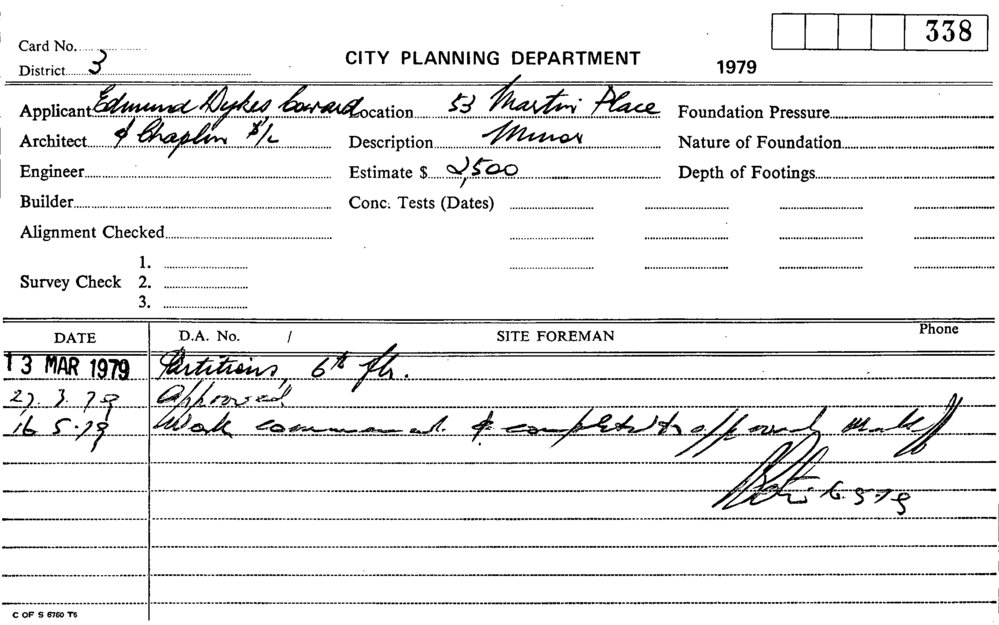 338
Card No.
CITY PLANNING DEPARTMENT
District 3
1979
Applicant Edmund Dykes Coward Location 53 Martin Place Foundation Pressure
Architect & Chaplin P/L Description Minor Nature of Foundation
Engineer Estimate $ 2,500 Depth of Footings
Builder Conc. Tests (Dates)
Alignment Checked
1.
Survey Check 2.
3.
DATE D.A. No. / SITE FOREMAN Phone
13 MAR 1979 Partitions, 6th flr.
27. 3. 79 Approved
16 5.79 Work commenced & completed to approved
16.5.79
C OF S 6760 T5